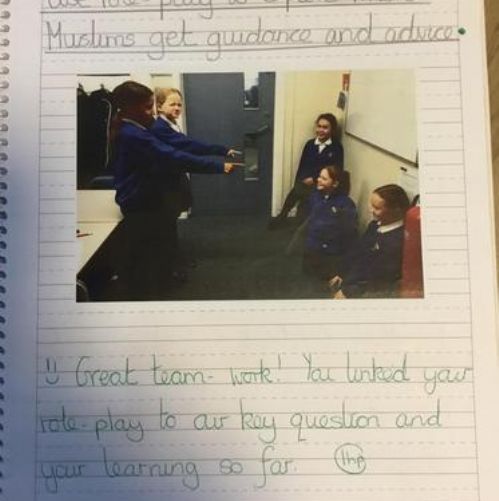 use role-play to
Muslims get guidance and advice.
Great team-work! You linked your
role-play to our key question and
your learning so far. 1hp